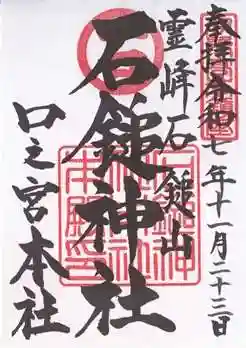 奉拝令和七年十一月二十三日
霊峰石鎚山
石鎚神社
口之宮本社